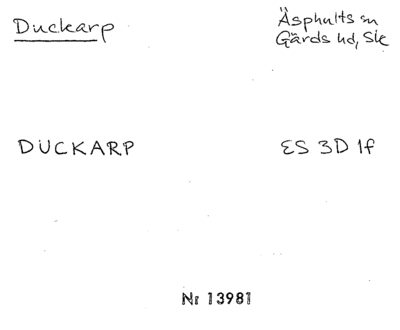 Duckarp
Äsphults sn
Gärds hd, Sk
DUCKARP
ES 3D 1f
Nr 13981